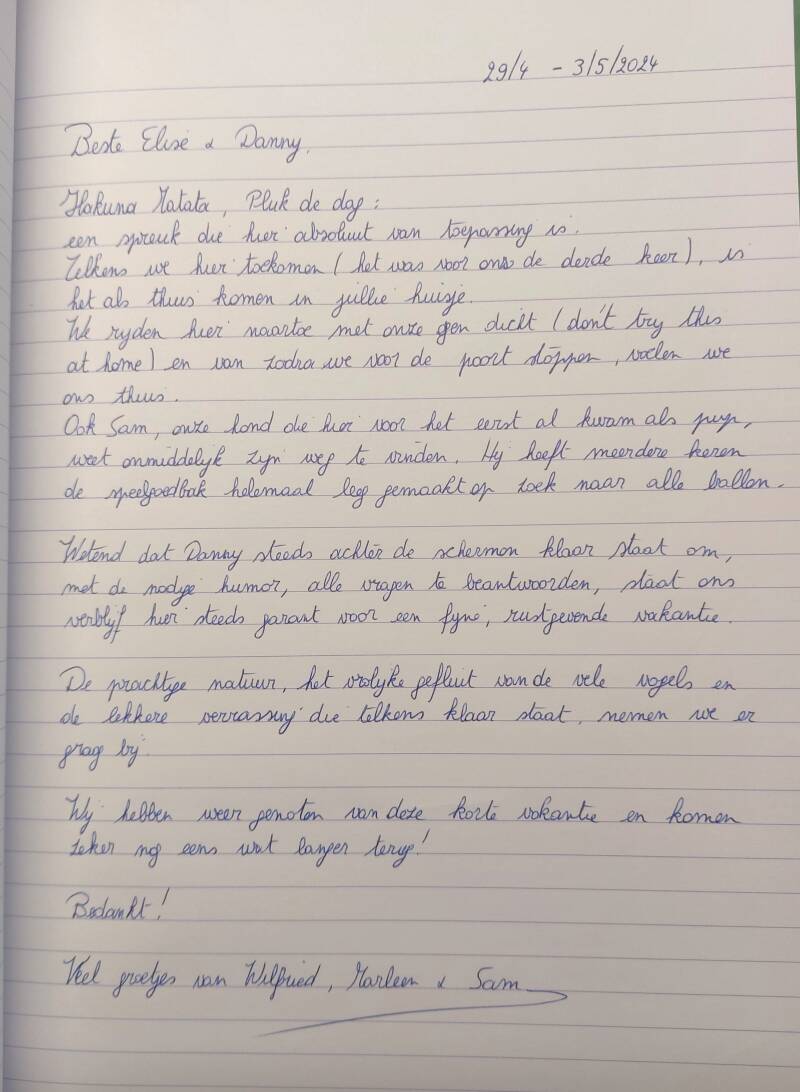 29/4 - 3/5/2024
Beste Elise & Danny,
Hakuna Matata, Pluk de dag:
een spreuk die hier absoluut van toepassing is.
Telkens we hier toekomen (het was voor ons de derde keer), is
het als thuis komen in jullie huisje.
We rijden hier naartoe met onze ogen dicht (don't try this
at home) en van zodra we voor de poort stoppen, voelen we
ons thuis.
Ook Sam, onze hond die hier voor het eerst al kwam als pup,
weet onmiddelijk zijn weg te vinden. Hij heeft meerdere keren
de speelgoedbak helemaal leeg gemaakt op zoek naar alle ballen.
Wetend dat Danny steeds achter de schermen klaar staat om,
met de nodige humor, alle vragen te beantwoorden, staat ons
verblijf hier steeds garant voor een fijne, rustgevende vakantie.
De prachtige natuur, het vrolijke gefluit van de vele vogels en
de lekkere verrassing die telkens klaar staat, nemen we er
graag bij.
Wij hebben weer genoten van deze korte vakantie en komen
zeker nog eens wat langer terug!
Bedankt!
Veel groetjes van Wilfried, Marleen & Sam